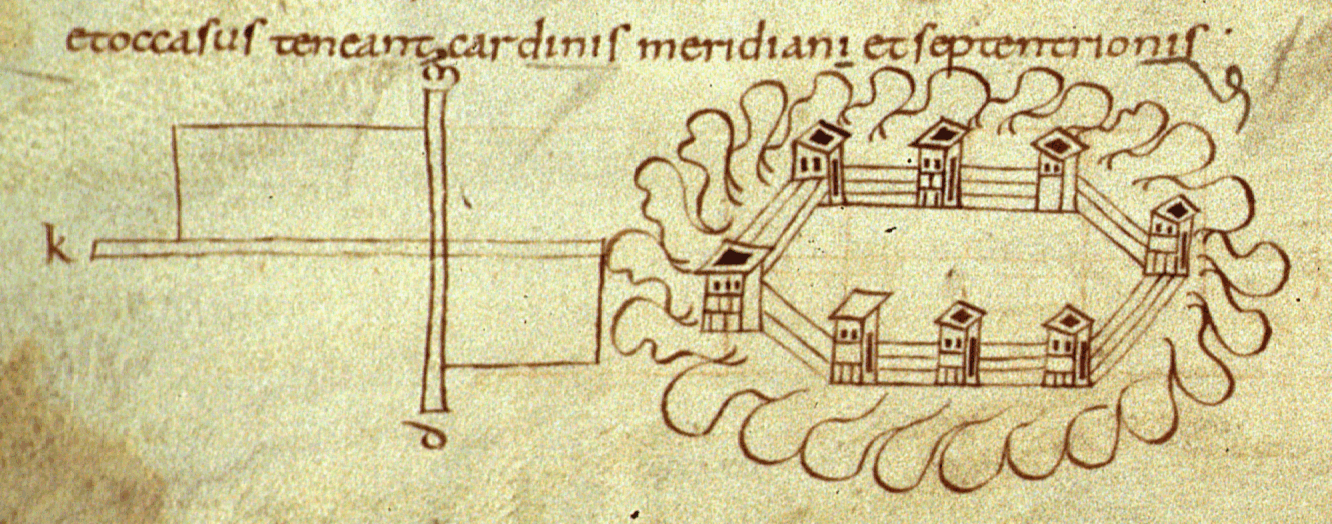 et occasus teneant cardinis meridiani et septentrionis
k
d